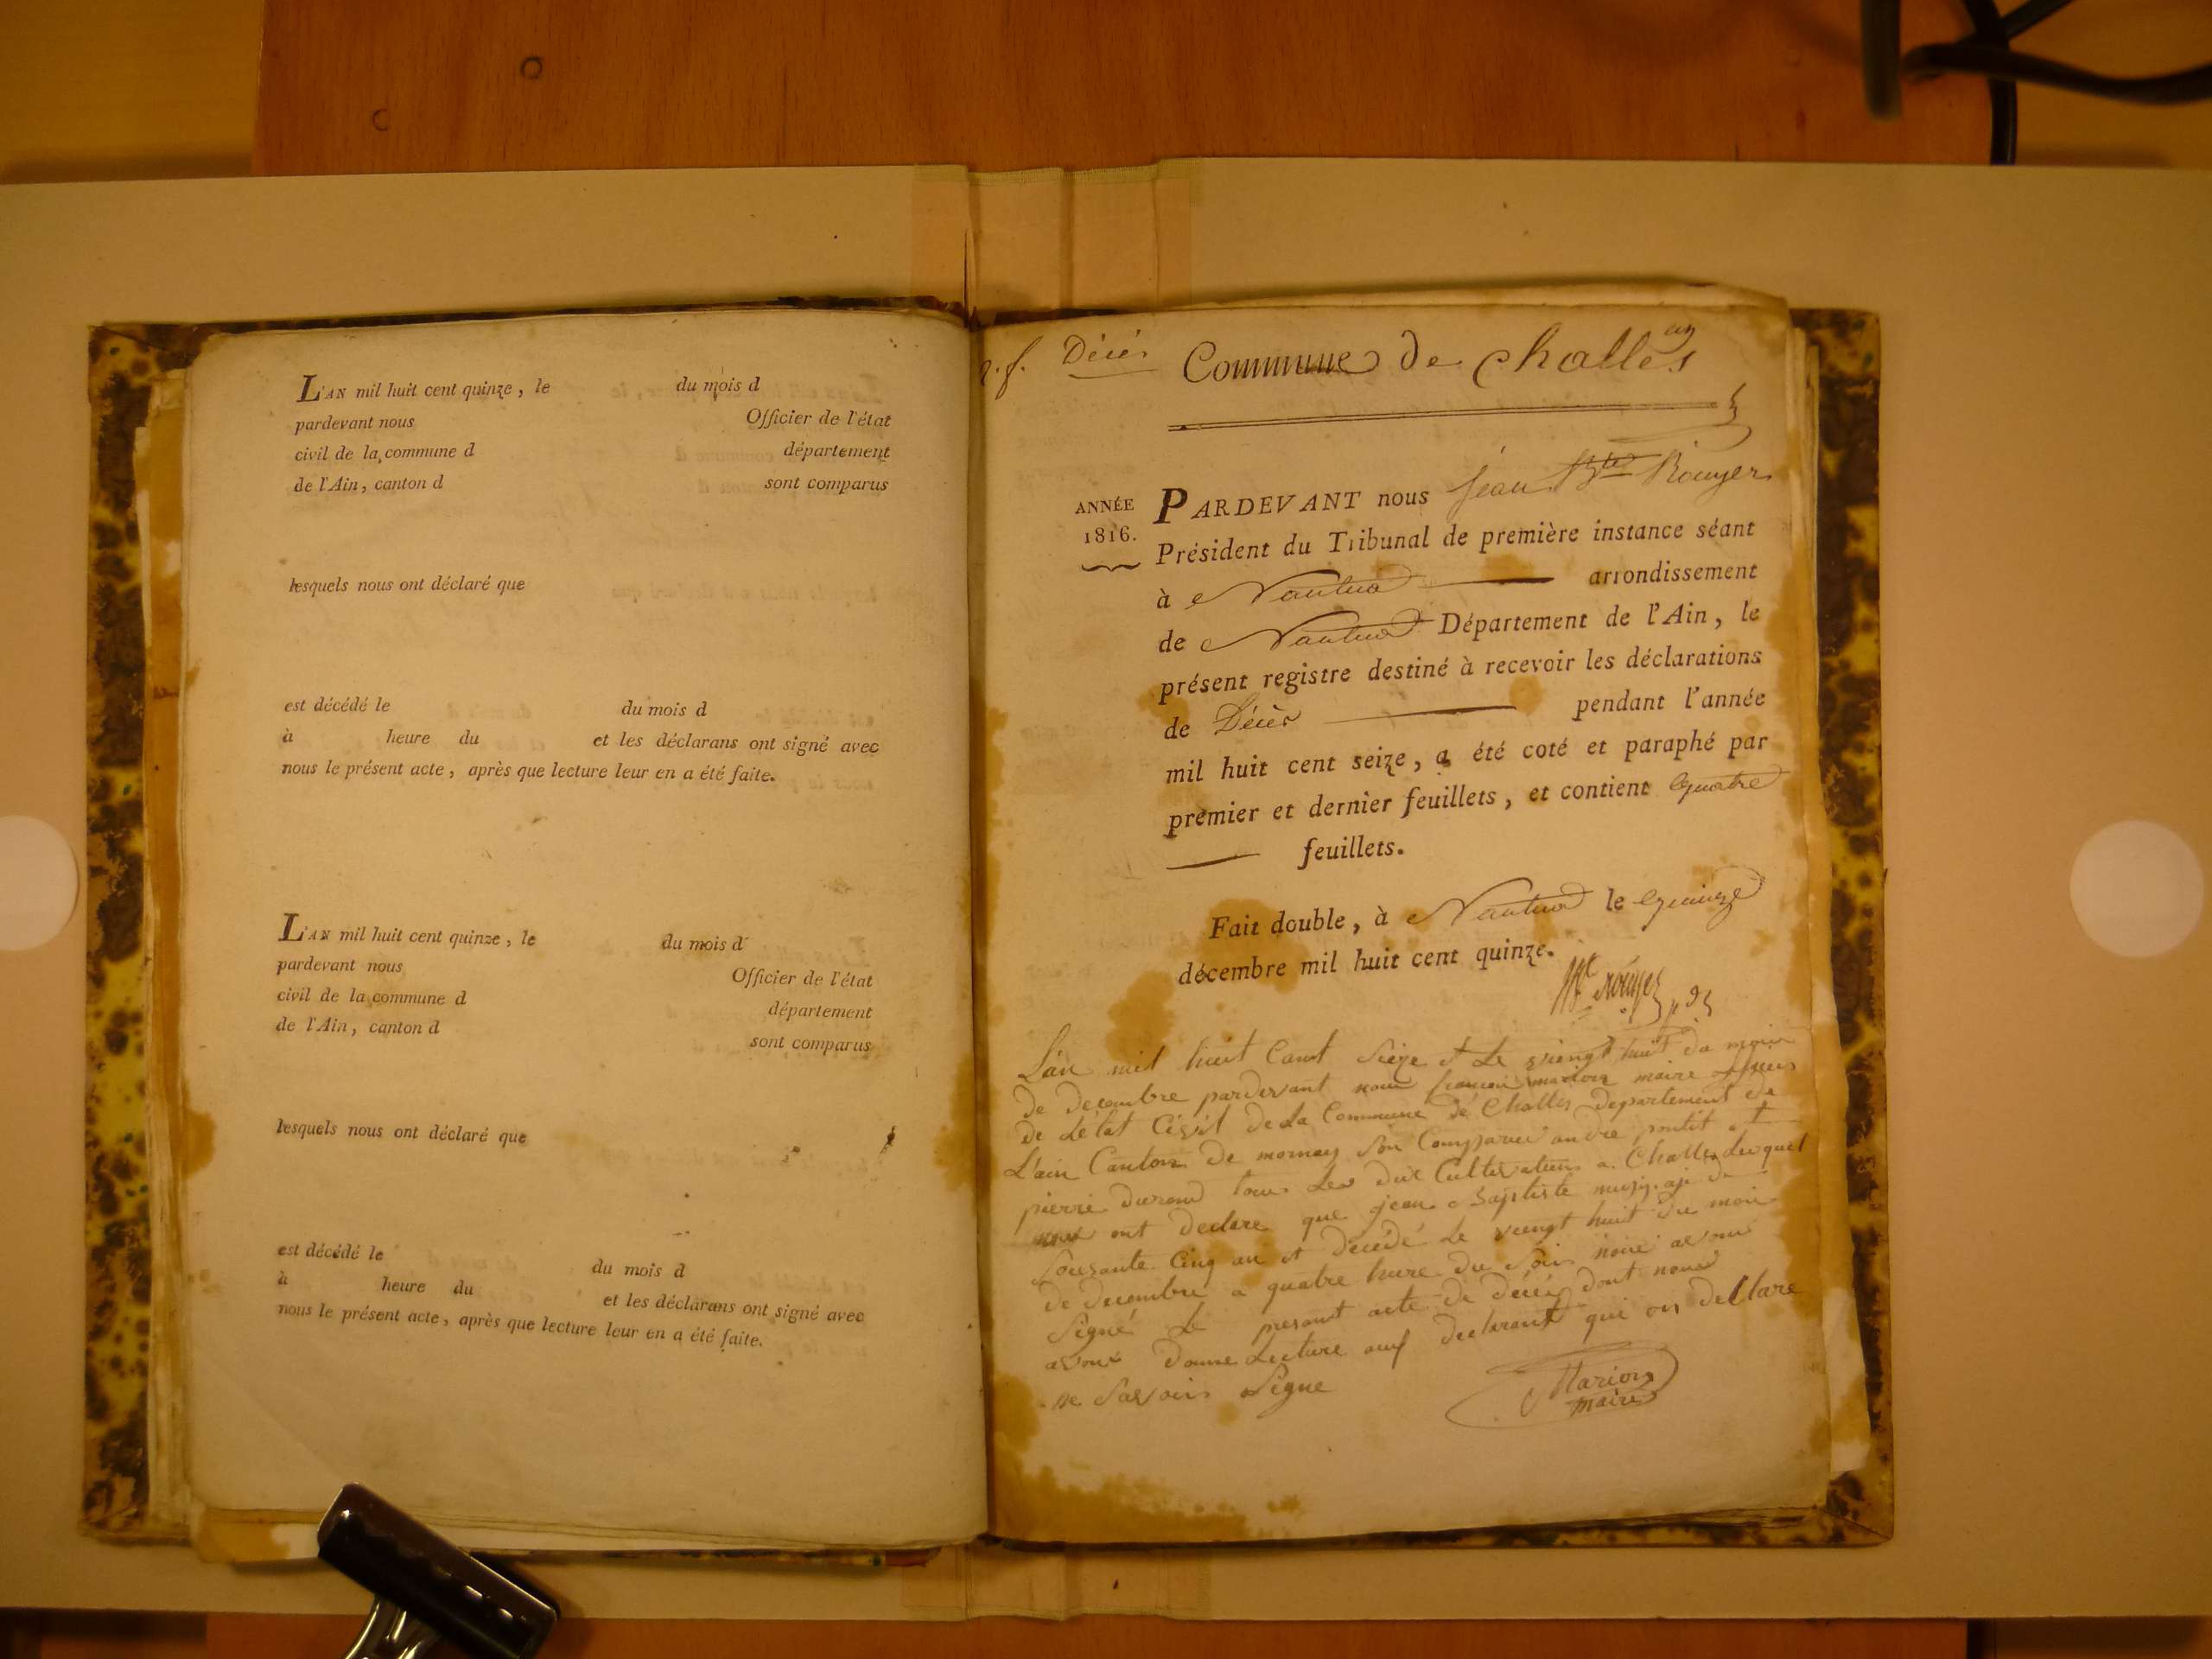 L'AN mil huit cent quinze, le du mois d
pardevant nous Officier de l'état
civil de la commune d département
de l'Ain, canton d sont comparus
lesquels nous ont déclaré que
est décédé le du mois d
à heure du et les déclarans ont signé avec
nous le présent acte, après que lecture leur en a été faite.
L'AN mil huit cent quinze, le du mois d
pardevant nous Officier de l'état
civil de la commune d département
de l'Ain, canton d sont comparus
lesquels nous ont déclaré que
est décédé le du mois d
à heure du et les déclarans ont signé avec
nous le présent acte, après que lecture leur en a été faite.
Décès Commune de challes
ANNÉE
1816.
PARDEVANT nous Jean Bte Rouyer
Président du Tribunal de première instance séant
à Nantua arrondissement
de Nantua Département de l'Ain, le
présent registre destiné à recevoir les déclarations
de Décès pendant l'année
mil huit cent seize, a été coté et paraphé par
premier et dernier feuillets, et contient quatre
feuillets.
Fait double, à Nantua le quinze
décembre mil huit cent quinze.
Rouyer
L'an mil huit Cant Seize et Le viengt huit du mois
de decembre pardevant nous françois marion maire officier
de Létat Civil de La Commune de Challes Departement de
L'ain Canton de mornay Son Comparu andre pontit et
pierre durand tous Les dux Cultivateur a Challes Lesquel
nous ont declare que jean Baptiste agé de
Soixante Cinq an et decédé Le viengt huit du mois
de decembre a quatre hure du Soir nous avons
Signé Le presant acte de décés dont nous
avons donne Lecture auf declarant qui on declare
ne Savoir Signe
Marion
maire